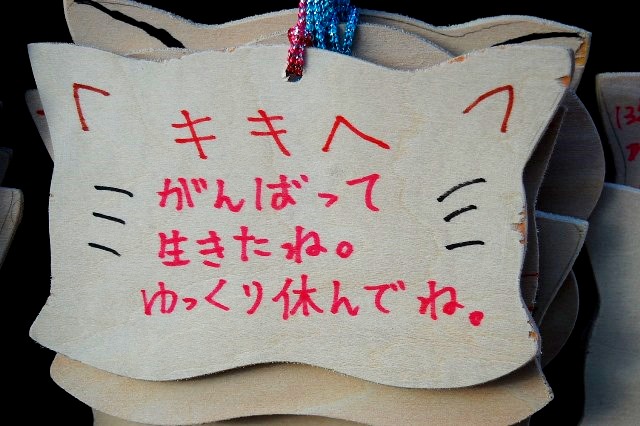 キキへ
がんばって
生きたね。
ゆっくり休んでね。